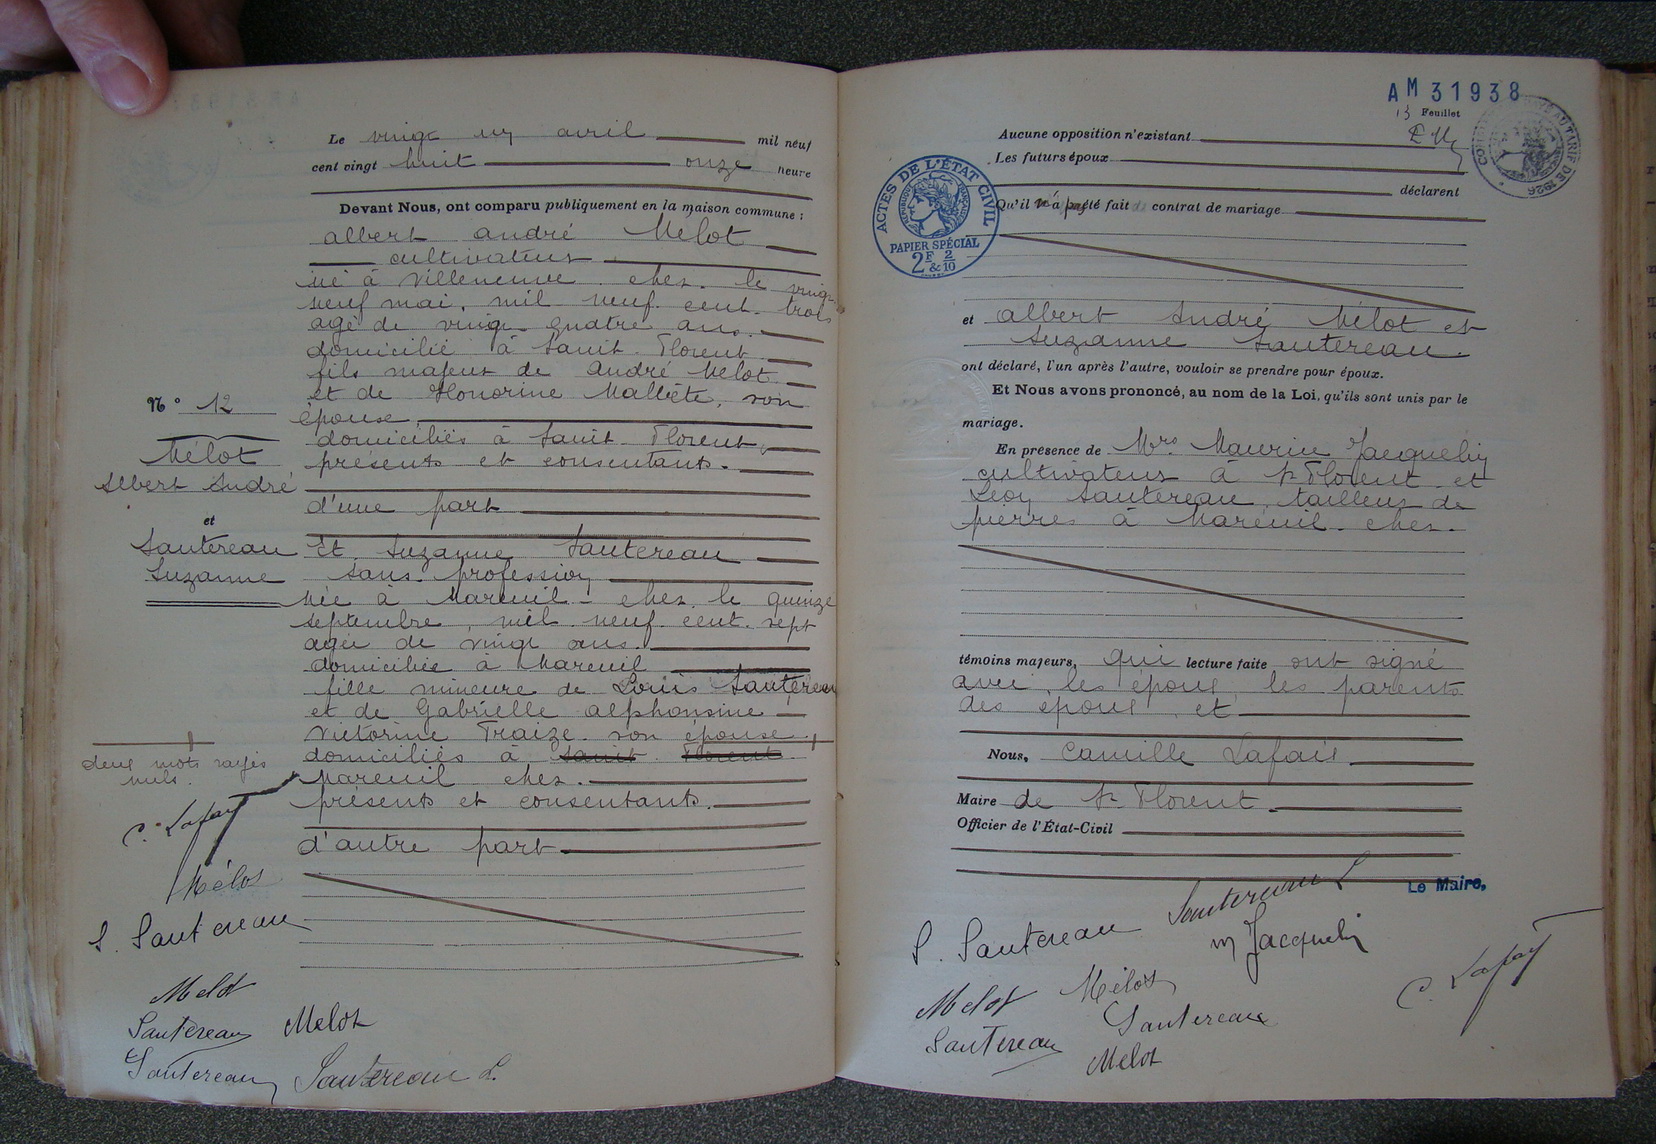 Le vingt un avril mil neuf
cent vingt huit onze heure
Devant Nous, ont comparu publiquement en la maison commune :
albert andré Mélot
cultivateur
né à Villeneuve . cher. le vingt
neuf mai, mil neuf cent trois
agé de vingt quatre ans.
domicilié à Saint Florent
fils majeur de André Melot
et de Honorine Malbête, son
épouse
domiciliés à Saint Florent,
présents et consentants.
d'une part
N° 12
Mélot
Albert André
et
Sautereau
Suzanne
Et Suzanne Sautereau
sans profession
née à Mareuil - cher. le quinze
septembre, mil neuf cent sept
agée de vingt ans.
domiciliée à Mareuil
fille mineure de Louis Sautereau
et de Gabrielle alphonsine
Victorine Traize son épouse,
domiciliés à Saint Florent
Mareuil cher.
présents et consentants.
d'autre part
deux mots rayés
nuls.
C. Lafaix
Mélot
S. Sautereau
Melot
Sautereau Melot
Sautereau Sautereau L.
AM 31938
13 Feuillet
Aucune opposition n'existant
Les futurs époux
déclarent
Qu'il n'a pas été fait de contrat de mariage
ACTES DE L'ÉTAT CIVIL
RÉPUBLIQUE FRANÇAISE
PAPIER SPÉCIAL
2F 2/10
&
TARIF DE 1926
et albert André Mélot et
Suzanne Sautereau.
ont déclaré, l'un après l'autre, vouloir se prendre pour époux.
Et Nous avons prononcé, au nom de la Loi, qu'ils sont unis par le
mariage.
En présence de Mrs Maurice Jacquelin
cultivateur à St Florent et
Léon Sautereau, tailleur de
pierres à Mareuil. cher.
témoins majeurs, qui lecture faite ont signé
avec les époux, les parents
des époux, et
Nous, Camille Lafaix
Maire de St Florent
Officier de l'État-Civil
Le Maire,
S. Sautereau Sautereau L
M Jacquelin
Melot Mélot
Sautereau Sautereau
Melot
C. Lafaix